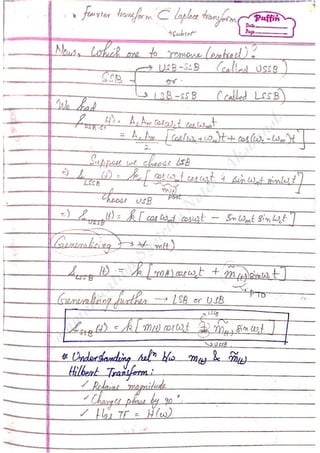 Fourier transform ⊂ Laplace transform
↳ subset
Puffin
Date
Page
Now, Which one to remove (extract)?
SSB → USB-SSB (called USSB)
or
→ LSB-SSB (called LSSB)
We had
(t) = AcAm cosωct cosωmt
= AcAm/2 [cos(ωc+ωm)t + cos(ωc-ωm)t]
Suppose we choose LSB
⇒ SLSSB(t) = k [cosωmt cosωct + sinωct sinωmt]
m(t)
choose USB
⇒ SUSSB(t) = k [cosωmt cosωct - sinωct sinωmt]
Generalizing → ∀ m(t)
SLSSB(t) = k [m(t) cosωct + m̃(t) sinωct]
PTO
Generalizing further → LSB or USB
LSSB
SSSB(t) = k [m(t) cosωct ± m̃(t) sinωct]
USSB
* Understanding relⁿ b/w m(t) & m̃(t)
Hilbert Transform:
✓ Retains magnitude
✓ Changes phase by 90°
✓ Has TF = H(ω)